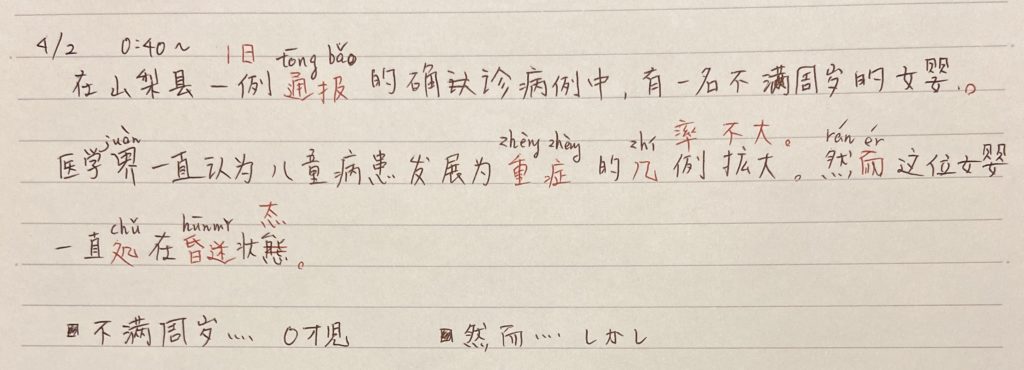 4/2 0:40~ 1日 tōng bǎo
在山梨县一例通报的确认诊病例中,有一名不满周岁的女婴。
juàn zhèng zhèng zhí 率不大。 rán ér
医学界一直认为儿童病患发展为重症的几例扩大。然而这位女婴
chǔ hūnmí 态
一直处在昏迷状態。
不满周岁.... 0才児 然而.... しかし